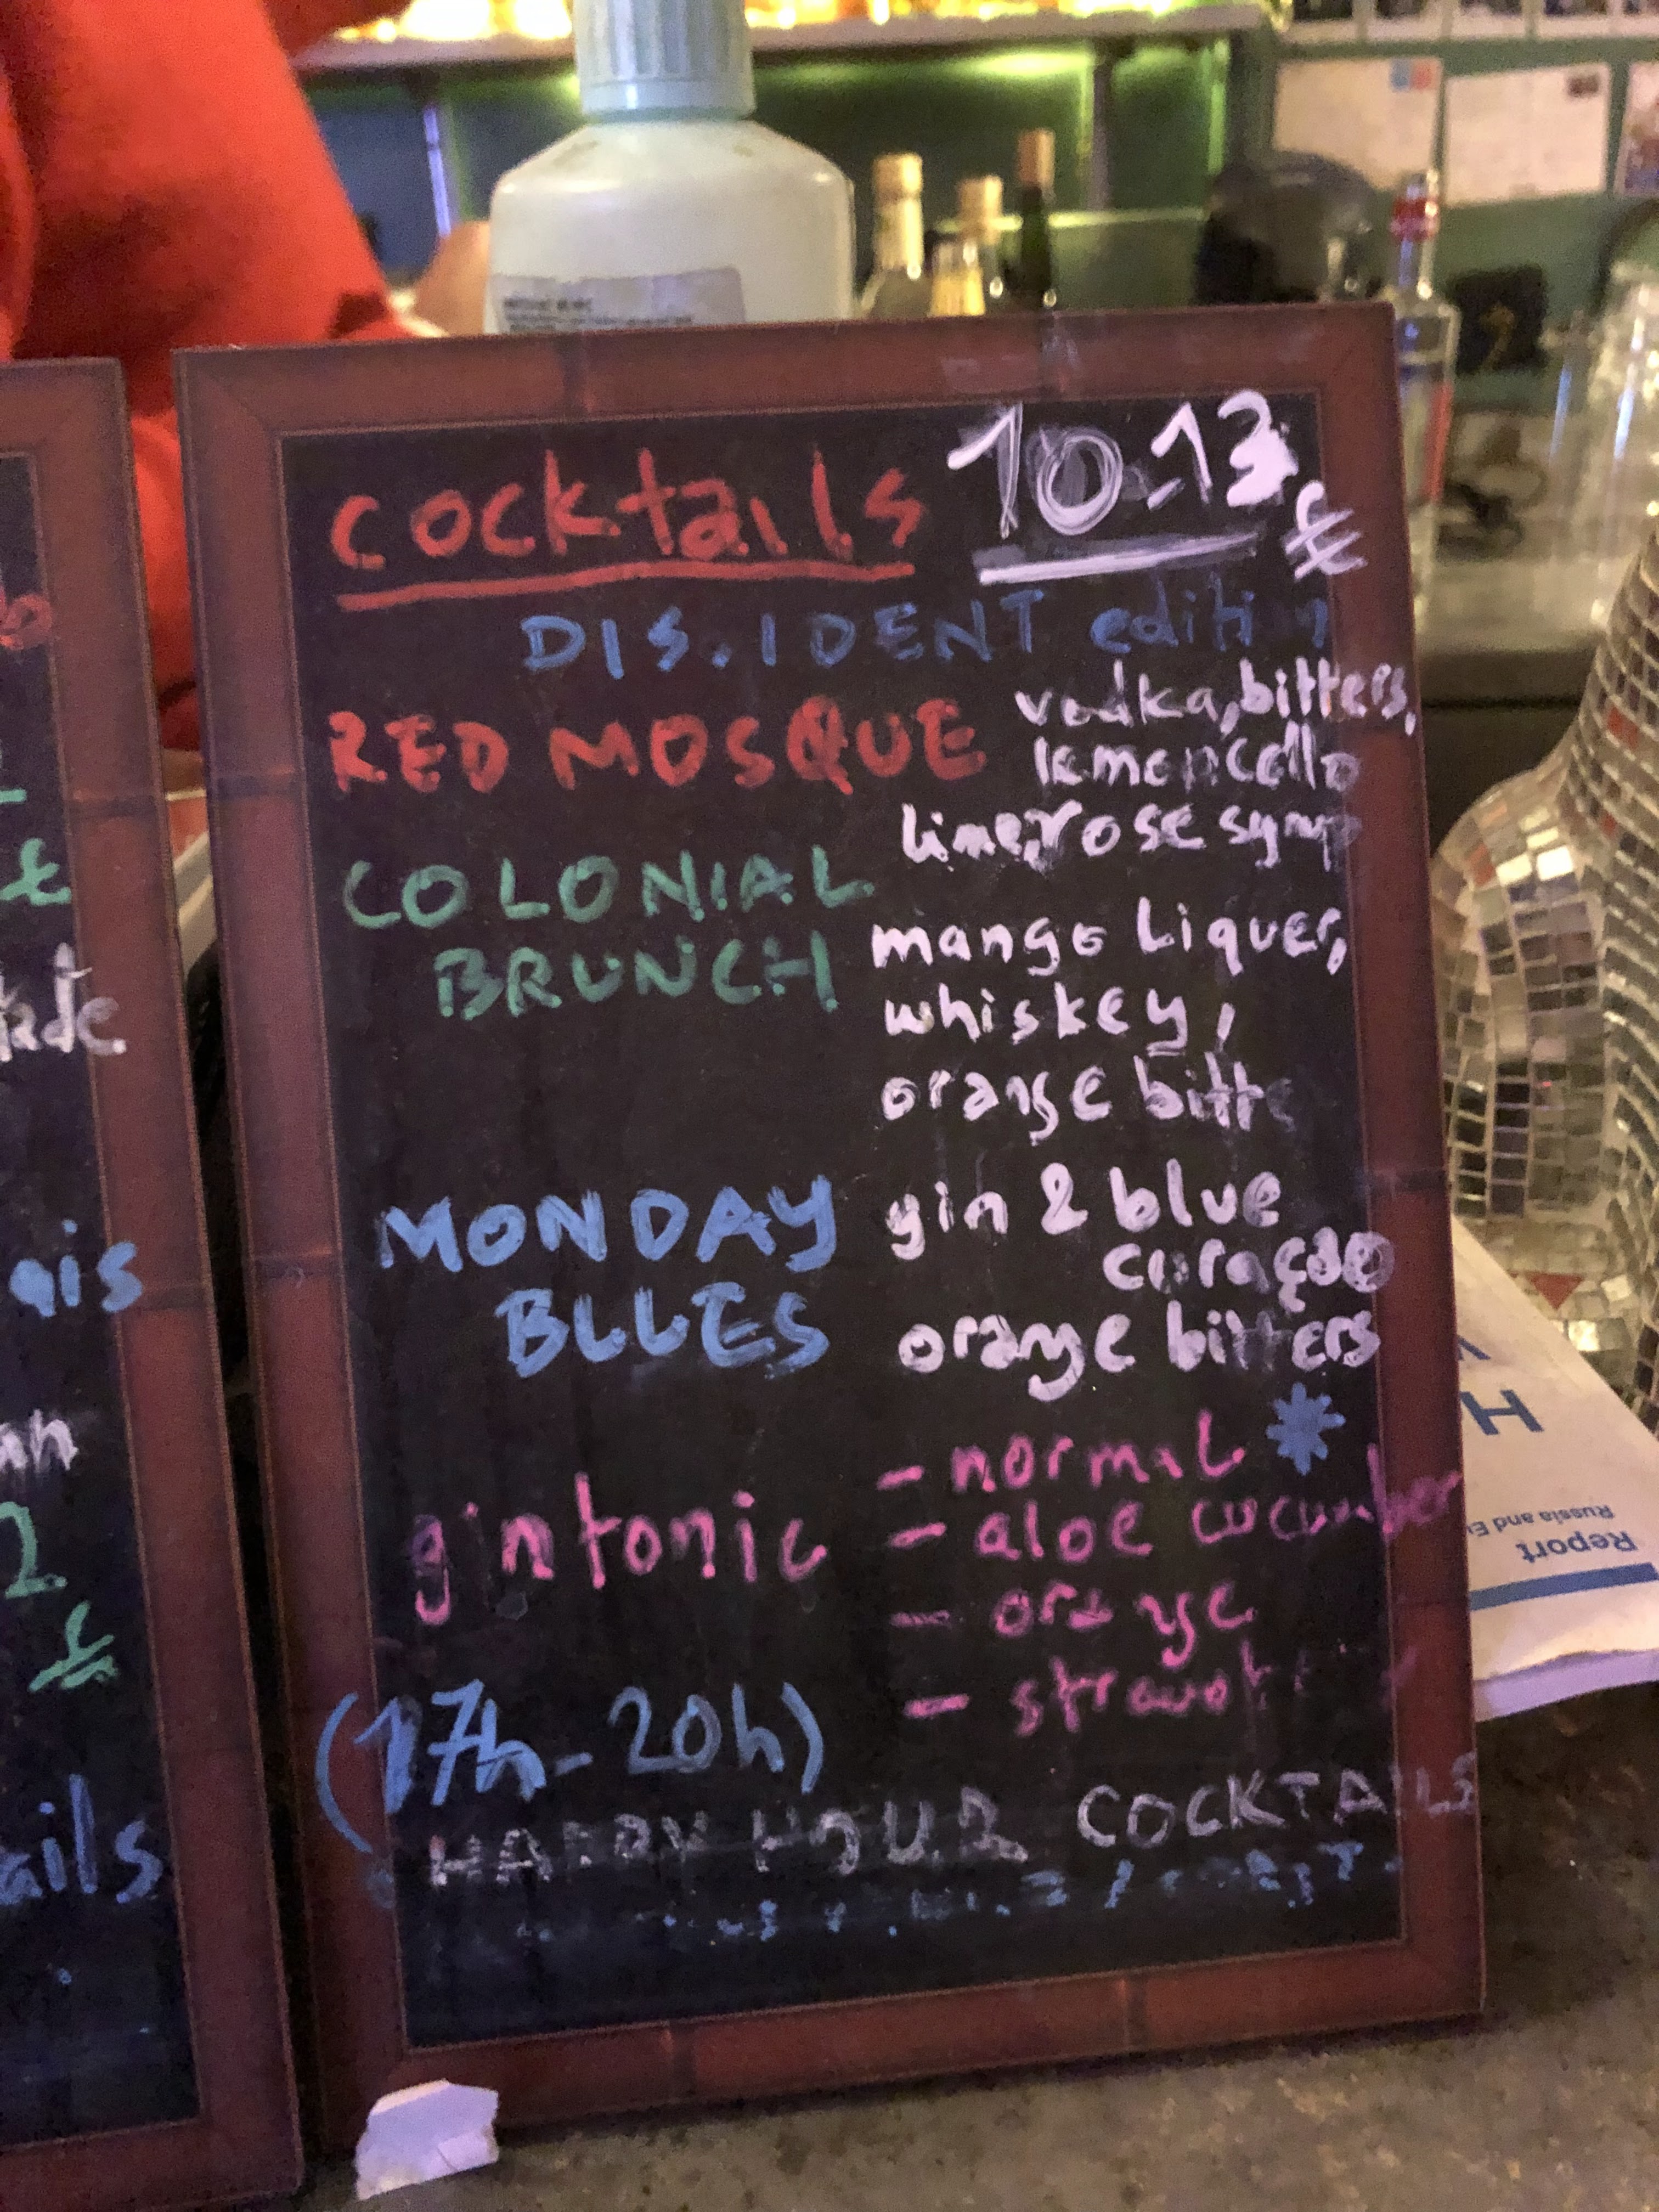 cocktails 10.13 €
DIS.IDENT edition
RED MOSQUE vodka, bitters,
lemoncello
lime, rose syrup
COLONIAL
BRUNCH mango Liquer,
whiskey,
orange bitte
MONDAY gin & blue
BLUES curaçao
orange bitters
gin tonic - normal *
- aloe cucumber
- orange
-
(17h-20h)
HAPPY HOUR COCKTAILS
ais
2
€
ails
H
Report
Russia and